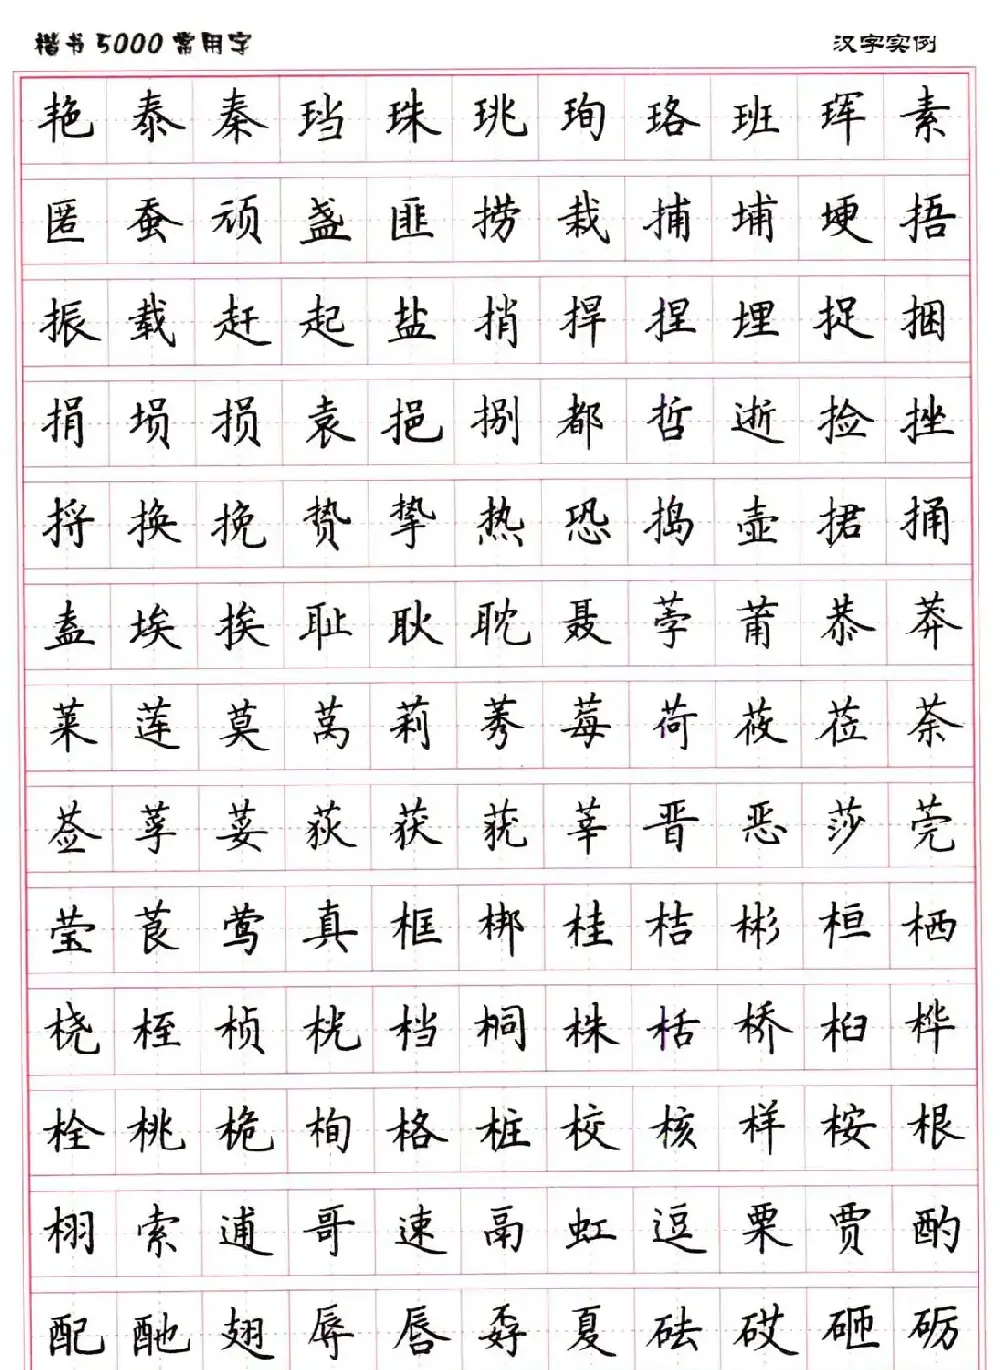 楷书5000常用字 汉字实例
艳泰秦珰珠珧珣珞班珲素
匿蚕顽盏匪捞栽捕埔埂捂
振载赶起盐捎捍捏埋捉捆
捐埙损袁挹捌都哲逝捡挫
捋换挽贽挚热恐捣壶捃捅
盍埃挨耻耿耽聂荸莆恭莽
莱莲莫莴莉莠莓荷莜莅荼
莶莩荽荻莸莼莘晋恶莎莞
莹莨莺真框梆桂桔彬桓栖
桡桎桢桄档桐株栝桥桕桦
栓桃桅栒格桩校核样桉根
栩索逋哥速鬲虹逗栗贾酌
配酏翅辱唇孬夏砝砹砸砺